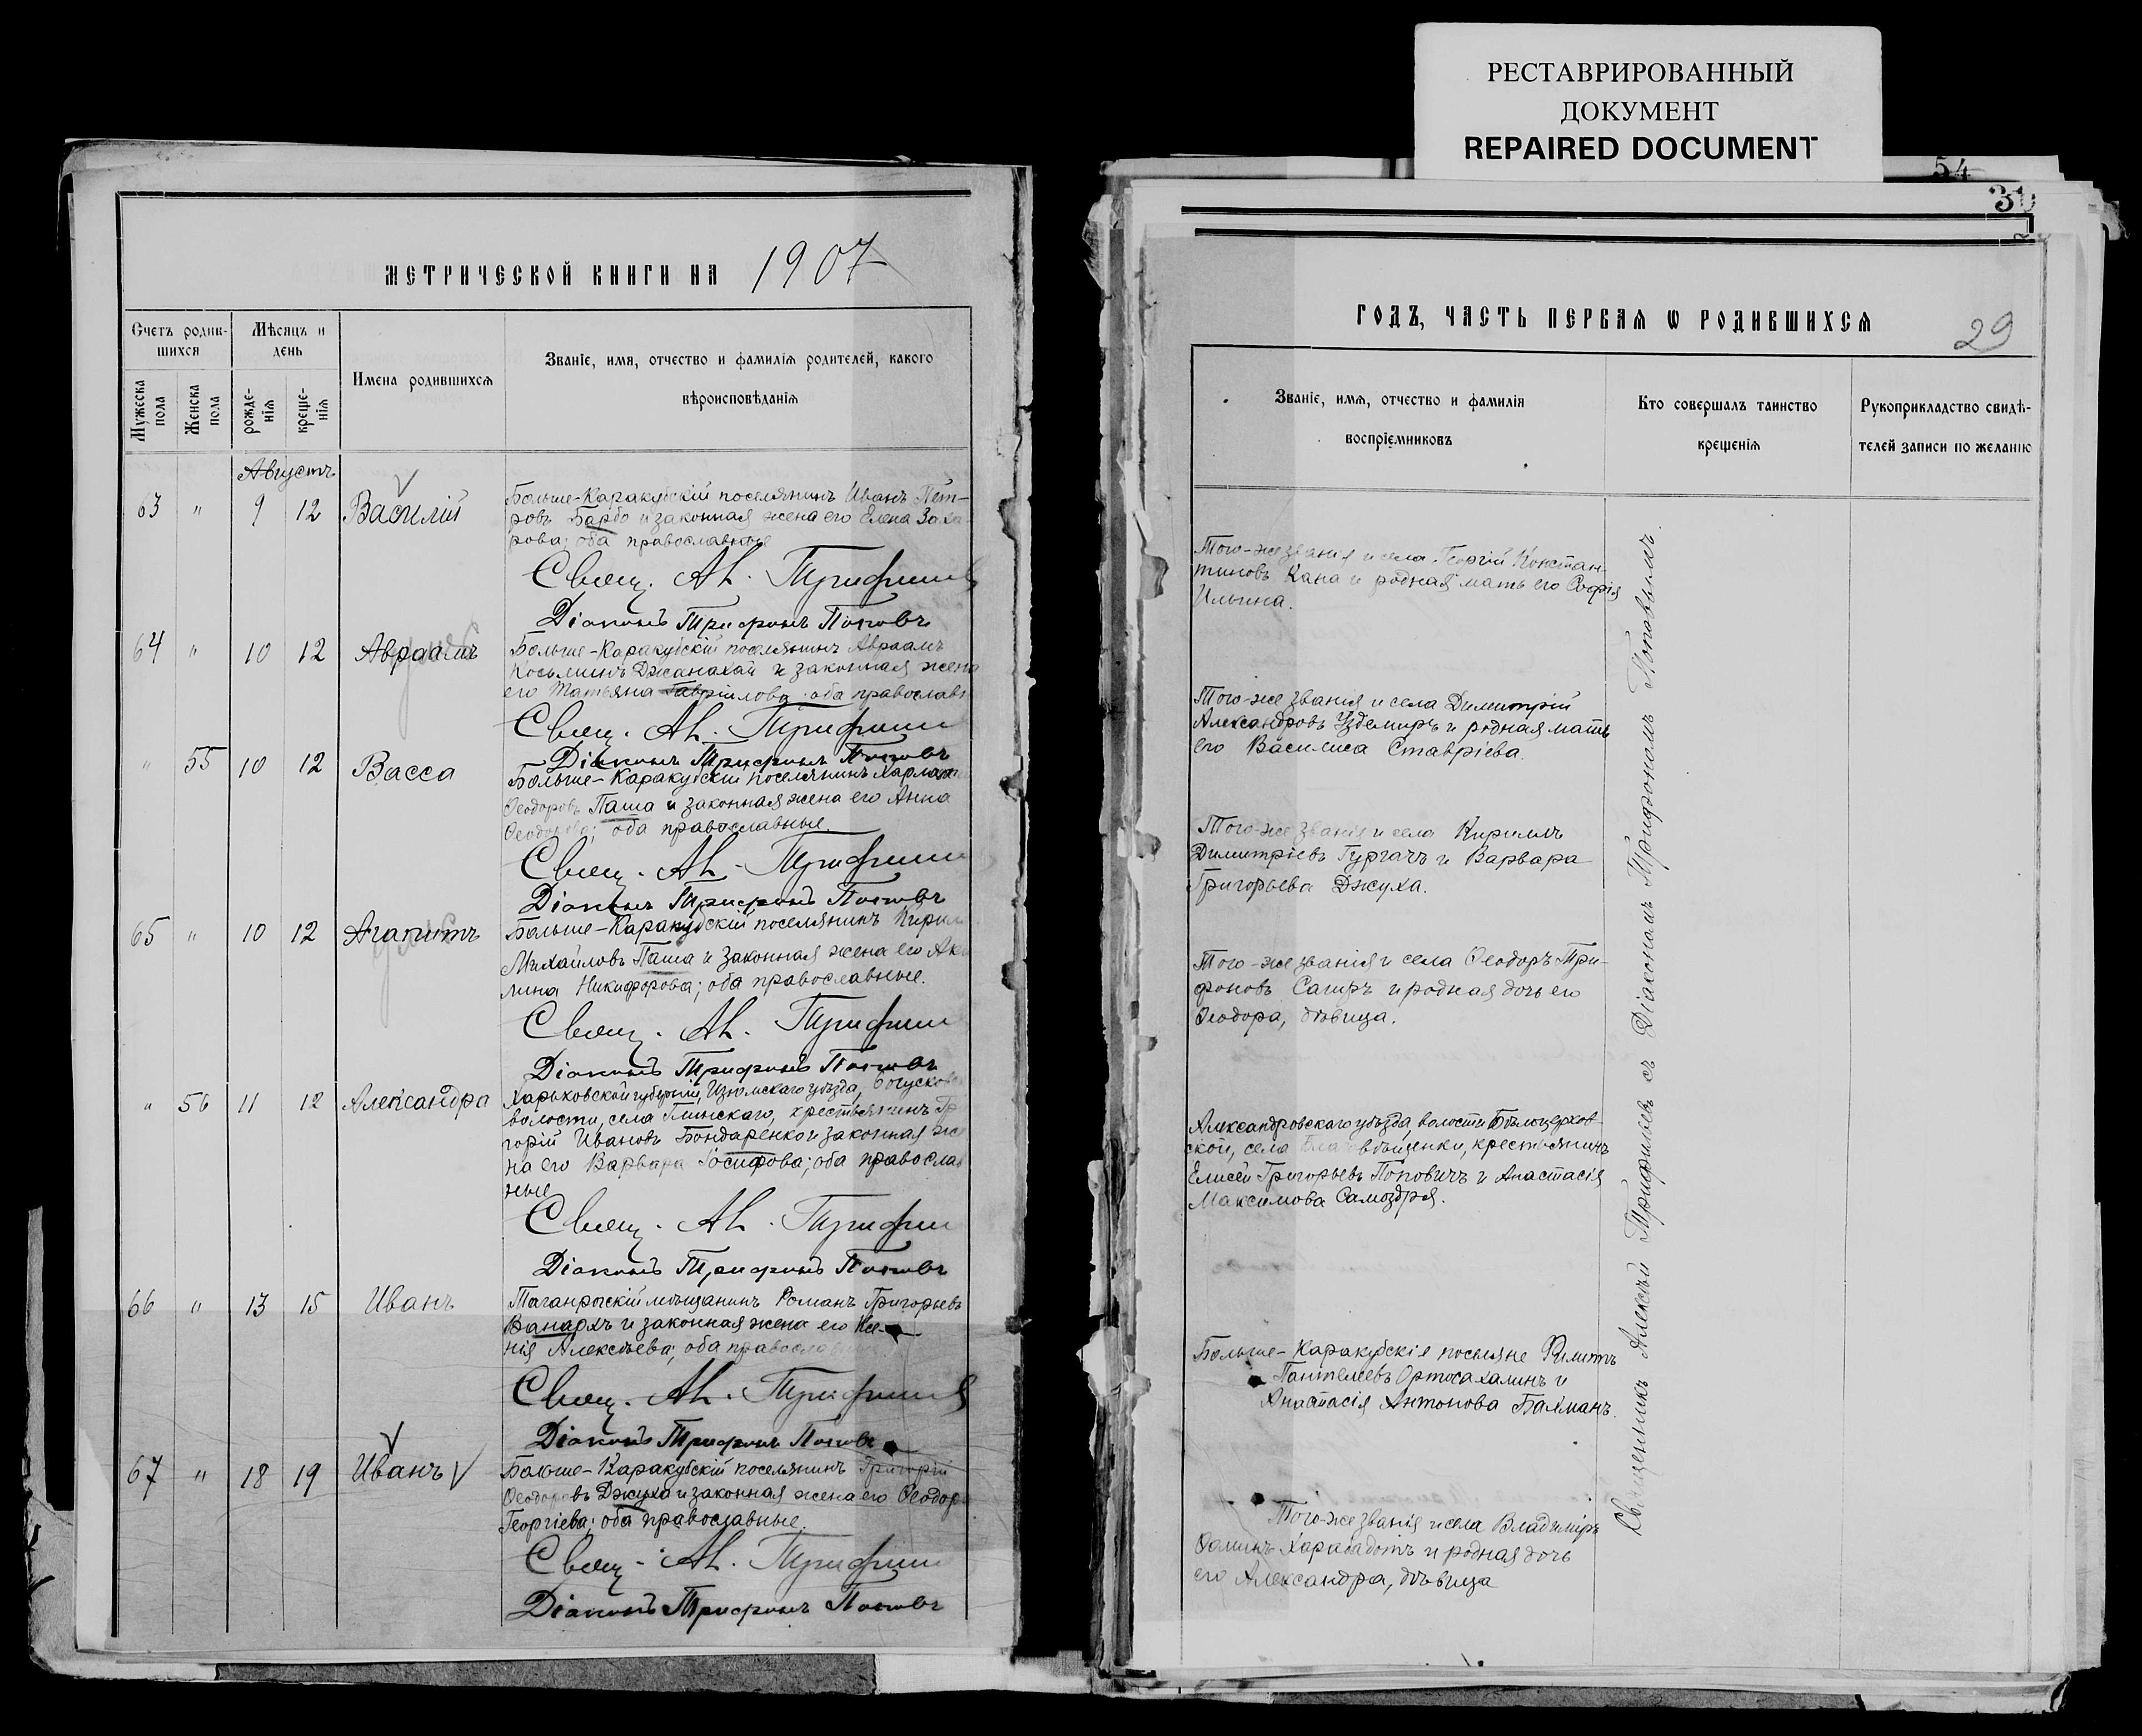 РЕСТАВРИРОВАННЫЙ
ДОКУМЕНТ
REPAIRED DOCUMENT
54
МЕТРИЧЕСКОЙ КНИГИ НА 1907
Счетъ родив-
шихся
Мѣсяцъ и
день
Имена родившихся
Званіе, имя, отчество и фамилія родителей, какого
вѣроисповѣданія
Мужеска
пола
Женска
пола
рожде-
нія
креще-
нія
Августъ
63 " 9 12 Василій
Больше-Каракубскій поселянинъ Иванъ Пет-
ровъ Барбо и законная жена его Елена Заха-
рова; оба православные
Свящ. Ал. Трифильев
Діаконъ Трифонъ Поповъ
64 " 10 12 Авраамъ
Больше-Каракубскій поселянинъ Авраамъ
Косьминъ Джанахай и законная жена
его Татьяна Гавріилова; оба православн
Свящ. Ал. Трифильев
Діаконъ Трифонъ Поповъ
" 55 10 12 Васса
Больше-Каракубскій поселянинъ Харламп
Ѳеодоровъ Паша и законная жена его Анна
Ѳеодорова; оба православные.
Свящ. Ал. Трифильев
Діаконъ Трифонъ Поповъ
65 " 10 12 Агапитъ
Больше-Каракубскій поселянинъ Кирил
Михайловъ Паша и законная жена его Аки
лина Никифорова; оба православные.
Свящ. Ал. Трифильев
Діаконъ Трифонъ Поповъ
" 56 11 12 Александра
Харьковской губерніи, Изюмскаго уѣзда,
волости, села Глинскаго, крестьянинъ Гр
горій Ивановъ Бондаренко и законная же
на его Варвара Іосифова; оба православ
ные
Свящ. Ал. Трифильев
Діаконъ Трифонъ Поповъ
66 " 13 15 Иванъ
Таганрогскій мѣщанинъ Романъ Григорьевъ
Ванархъ и законная жена его Ксе-
нія Алексѣева; оба православные.
Свящ. Ал. Трифильев
Діаконъ Трифонъ Поповъ
67 " 18 19 Иванъ
Больше-Каракубскій поселянинъ Григорій
Ѳеодоровъ Джуха и законная жена его Ѳеодор
Георгіева; оба православные.
Свящ. Ал. Трифильев
Діаконъ Трифонъ Поповъ
30
ГОДЪ, ЧАСТЬ ПЕРВАЯ Ѡ РОДИВШИХСЯ
29
Званіе, имя, отчество и фамилія
воспріемниковъ
Кто совершалъ таинство
крещенія
Рукоприкладство свидѣ-
телей записи по желанію
Того-же званія и села Георгій Констан-
тиновъ Кана и родная мать его Софія
Ильина.
Того-же званія и села Димитрій
Александровъ Узбемиръ и родная мать
его Василиса Ставріева.
Того-же званія и села Кириллъ
Димитріевъ Гургачъ и Варвара
Григорьева Джуха.
Того-же званія и села Ѳеодоръ Три-
фоновъ Сагиръ и родная дочь его
Ѳеодора, дѣвица.
Александровскаго уѣзда, волости Бѣлоцерков-
ской, села Благовѣщенки, крестьянинъ
Елисей Григорьевъ Поповичъ и Анастасія
Максимова Самоздря.
Больше-Каракубскіе поселяне Филиппъ
Пантелеевъ Ортосахалинъ и
Анастасія Антонова Бахманъ.
Того-же званія и села Владиміръ
Ѳоминъ Харабадотъ и родная дочь
его Александра, дѣвица
Священникъ Алексѣй Трифильевъ съ Діакономъ Трифономъ Поповымъ.